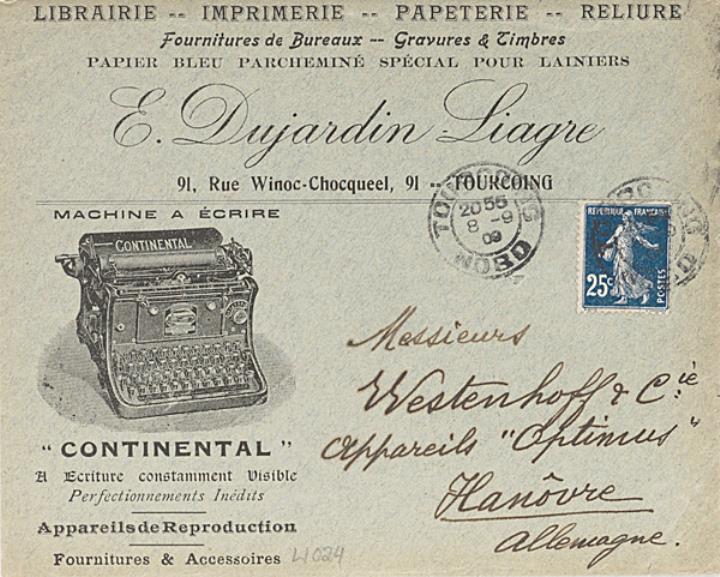 LIBRAIRIE -- IMPRIMERIE -- PAPETERIE -- RELIURE
Fournitures de Bureaux -- Gravures & Timbres
PAPIER BLEU PARCHEMINÉ SPÉCIAL POUR LAINIERS
E. Dujardin-Liagre
91, Rue Winoc-Chocqueel, 91 -- TOURCOING
MACHINE A ÉCRIRE
CONTINENTAL
TOURCOING
20 55
8 -9
09
NORD
REPUBLIQUE FRANÇAISE
25c
POSTES
Messieurs
Westenhoff & Cie
Appareils "Optimus"
Hanôvre
Allemagne.
"CONTINENTAL"
A Ecriture constamment Visible
Perfectionnements Inédits
Appareils de Reproduction
Fournitures & Accessoires